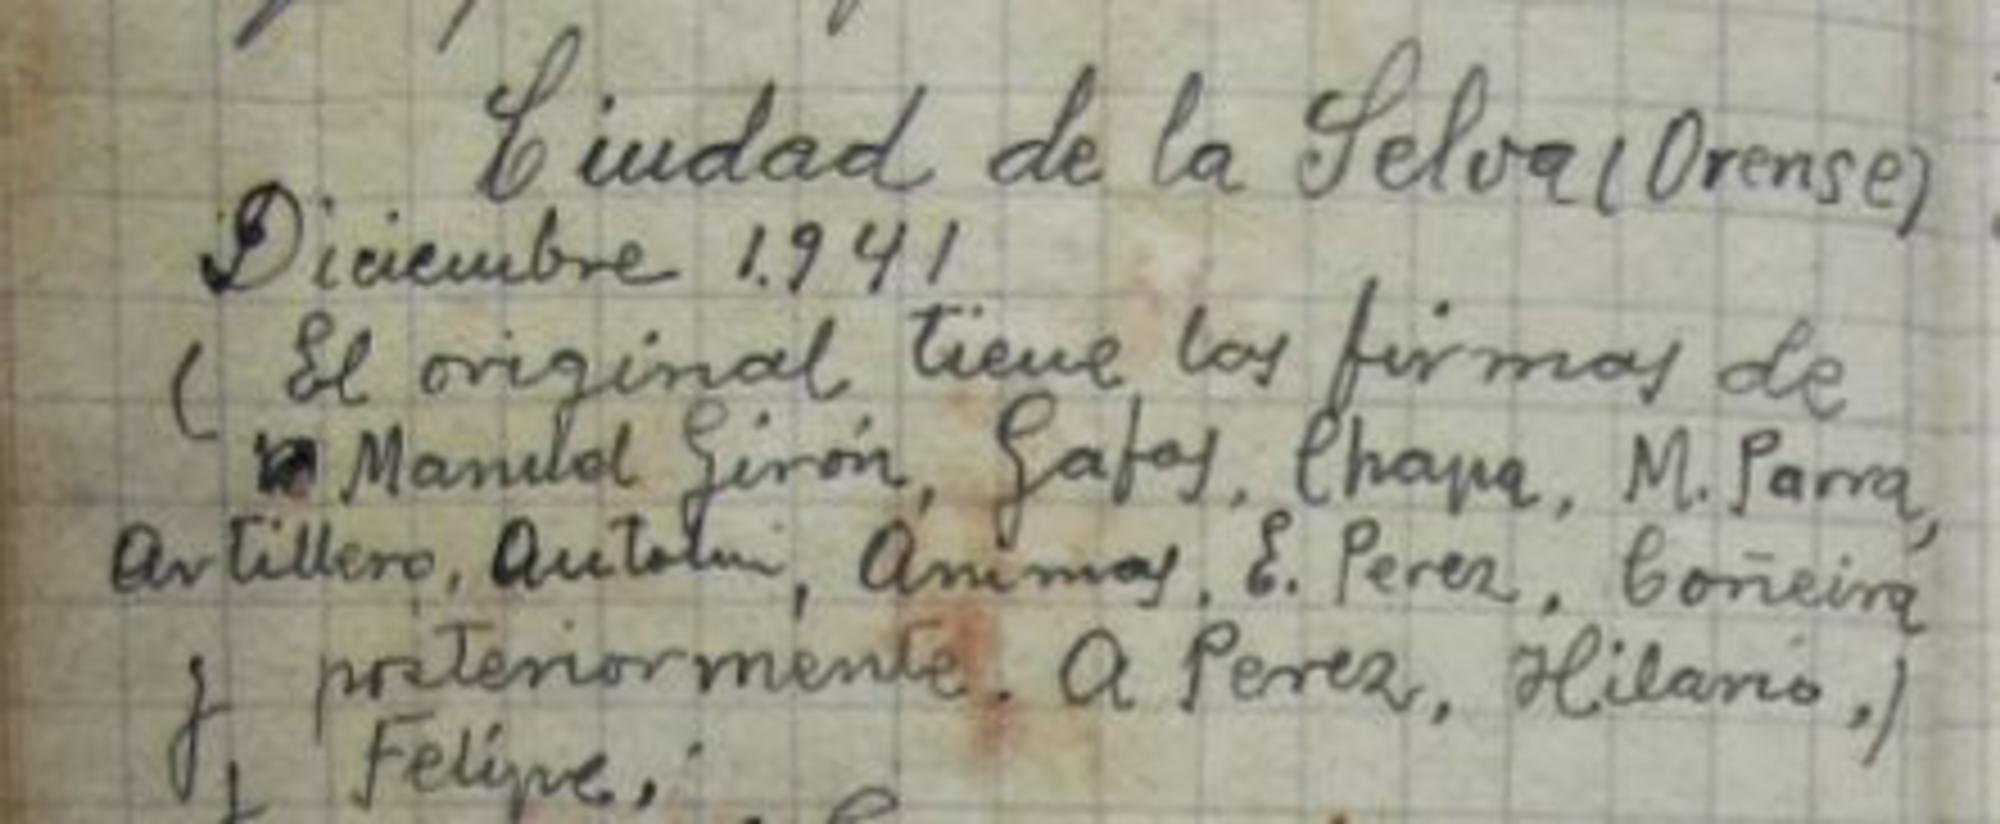 Ciudad de la Selva (Orense)
Diciembre 1.941
( El original tiene las firmas de
Manuel Girón, Gafas, Chapa, M. Parra,
Artillero, Autolin, Animas, E. Perez, Coñeira
y posteriormente. A Perez, Hilario,)
y Felipe,